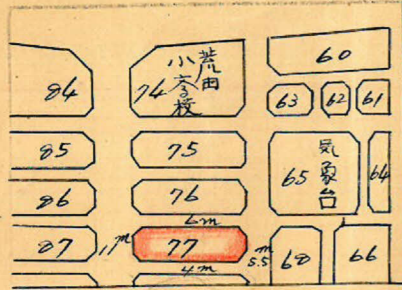 60
84
74
荒田
小学校
63
62
61
85
75
65
気象台
64
86
76
6m
87
11m
77
5.5m
68
66
4m